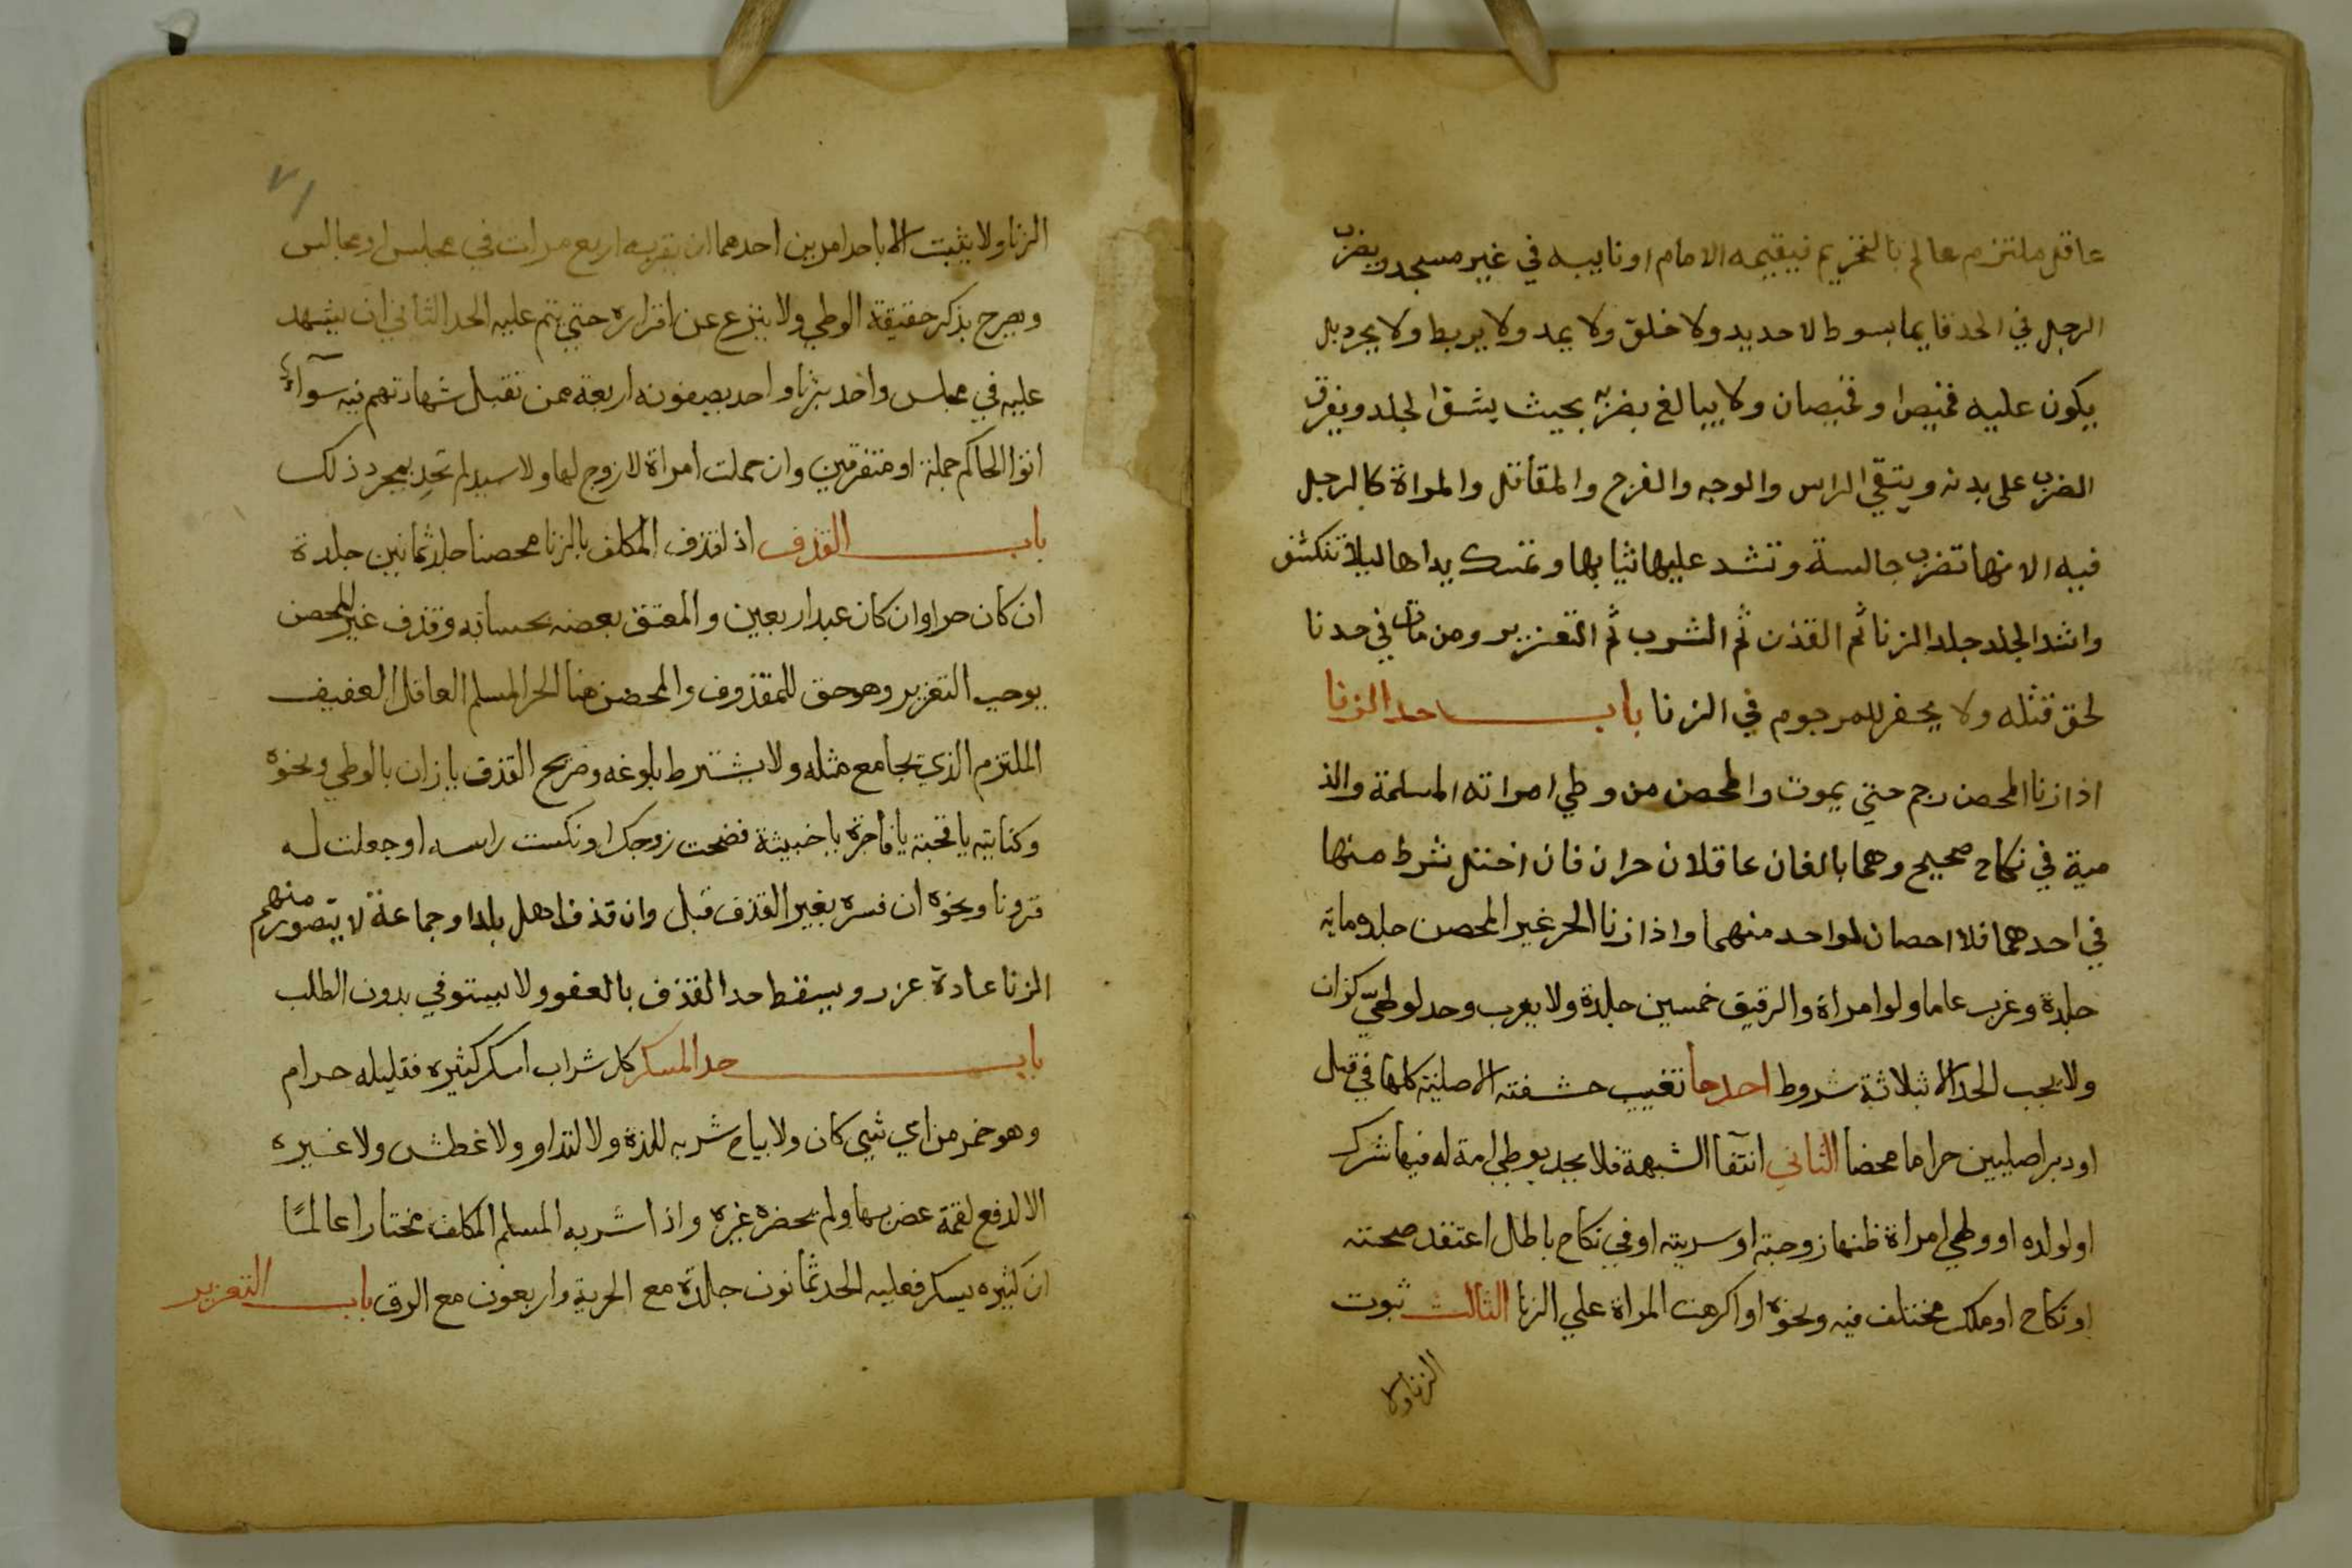 عاقل ملتزم عالم بالتحريم فيقيمه الامام او نايبه في غير مسجد ويضرب
الرجل في الحد قايما بسوط لا حديد ولا خلق ولا يمد ولا يربط ولا يجرد بل
يكون عليه قميص او قميصان ولا يبالغ بضربه بحيث يشق الجلد ويفرق
الضرب على بدنه ويتقي الراس والوجه والفرج والمقاتل والمراة كالرجل
فيه الا انها تضرب جالسة وتشد عليها ثيابها وتمسك يداها ليلا تنكشف
واشد الجلد جلد الزنا ثم القذف ثم الشرب ثم التعزير ومن مات في حد نا
لحق قتله ولا يحفر للمرجوم في الزنا باب حد الزنا
اذا زنا المحصن رجم حتي يموت والمحصن من وطي امراته المسلمة والذ
مية في نكاح صحيح وهما بالغان عاقلان حران فان اختل شرط منها
في احدهما فلا احصان لواحد منهما واذا زنا الحر غير المحصن جلد ماية
جلدة وغرب عاما ولو امراة والرقيق خمسين جلدة ولا يغرب وحد لوطيّ كزان
ولا يجب الحد الا بثلاثة شروط احدها تغييب حشفته الاصلية كلها في قبل
او دبر اصليين حراما محضا الثاني انتفآ الشبهة فلا يحد بوطي امة له فيها شرك
او لولده او وطي امراة ظنها زوجته او سريته او في نكاح باطل اعتقد صحته
او نكاح او ملك مختلف فيه ونحوه او اكرهت المراة علي الزنا الثالث ثبوت
الزنا ولا
٧١
الزنا ولا يثبت الا باحد امرين احدهما ان يقر به اربع مرات في مجلس او مجالس
ويصرح بذكر حقيقة الوطي ولا ينزع عن اقراره حتي يتم عليه الحد الثاني ان يشهد
عليه في مجلس واحد بزنا واحد يصفونه اربعة ممن تقبل شهادتهم فيه سوآء
اتوا الحاكم جملة او متفرقين وان حملت امراة لا زوج لها ولا سيد لم تحد بمجرد ذلك
باب القذف اذا قذف المكلف بالزنا محصنا جلد ثمانين جلدة
ان كان حرا وان كان عبدا اربعين والمعتق بعضه بحسابه وقذف غير المحصن
يوجب التعزير وهو حق للمقذوف والمحصن هنا الحر المسلم العاقل العفيف
الملتزم الذي يجامع مثله ولا يشترط بلوغه وصريح القذف يا زان يا لوطي ونحوه
وكنايته يا قحبة يا فاجرة يا خبيثة فضحت زوجك او نكست راسه او جعلت له
قرونا ونحوه ان فسره بغير القذف قبل وان قذف اهل بلد او جماعة لا يتصور منهم
الزنا عادة عزر ويسقط حد القذف بالعفو ولا يستوفي بدون الطلب
باب حد المسكر كل شراب اسكر كثيره فقليله حرام
وهو خمر من اي شي كان ولا يباح شربه للذة ولا لتداو ولا عطش ولا غيره
الا لدفع لقمة غص بها ولم يحضره غيره واذا شربه المسلم المكلف مختارا عالمًا
ان كثيره يسكر فعليه الحد ثمانون جلدة مع الحرية واربعون مع الرق باب التعزير